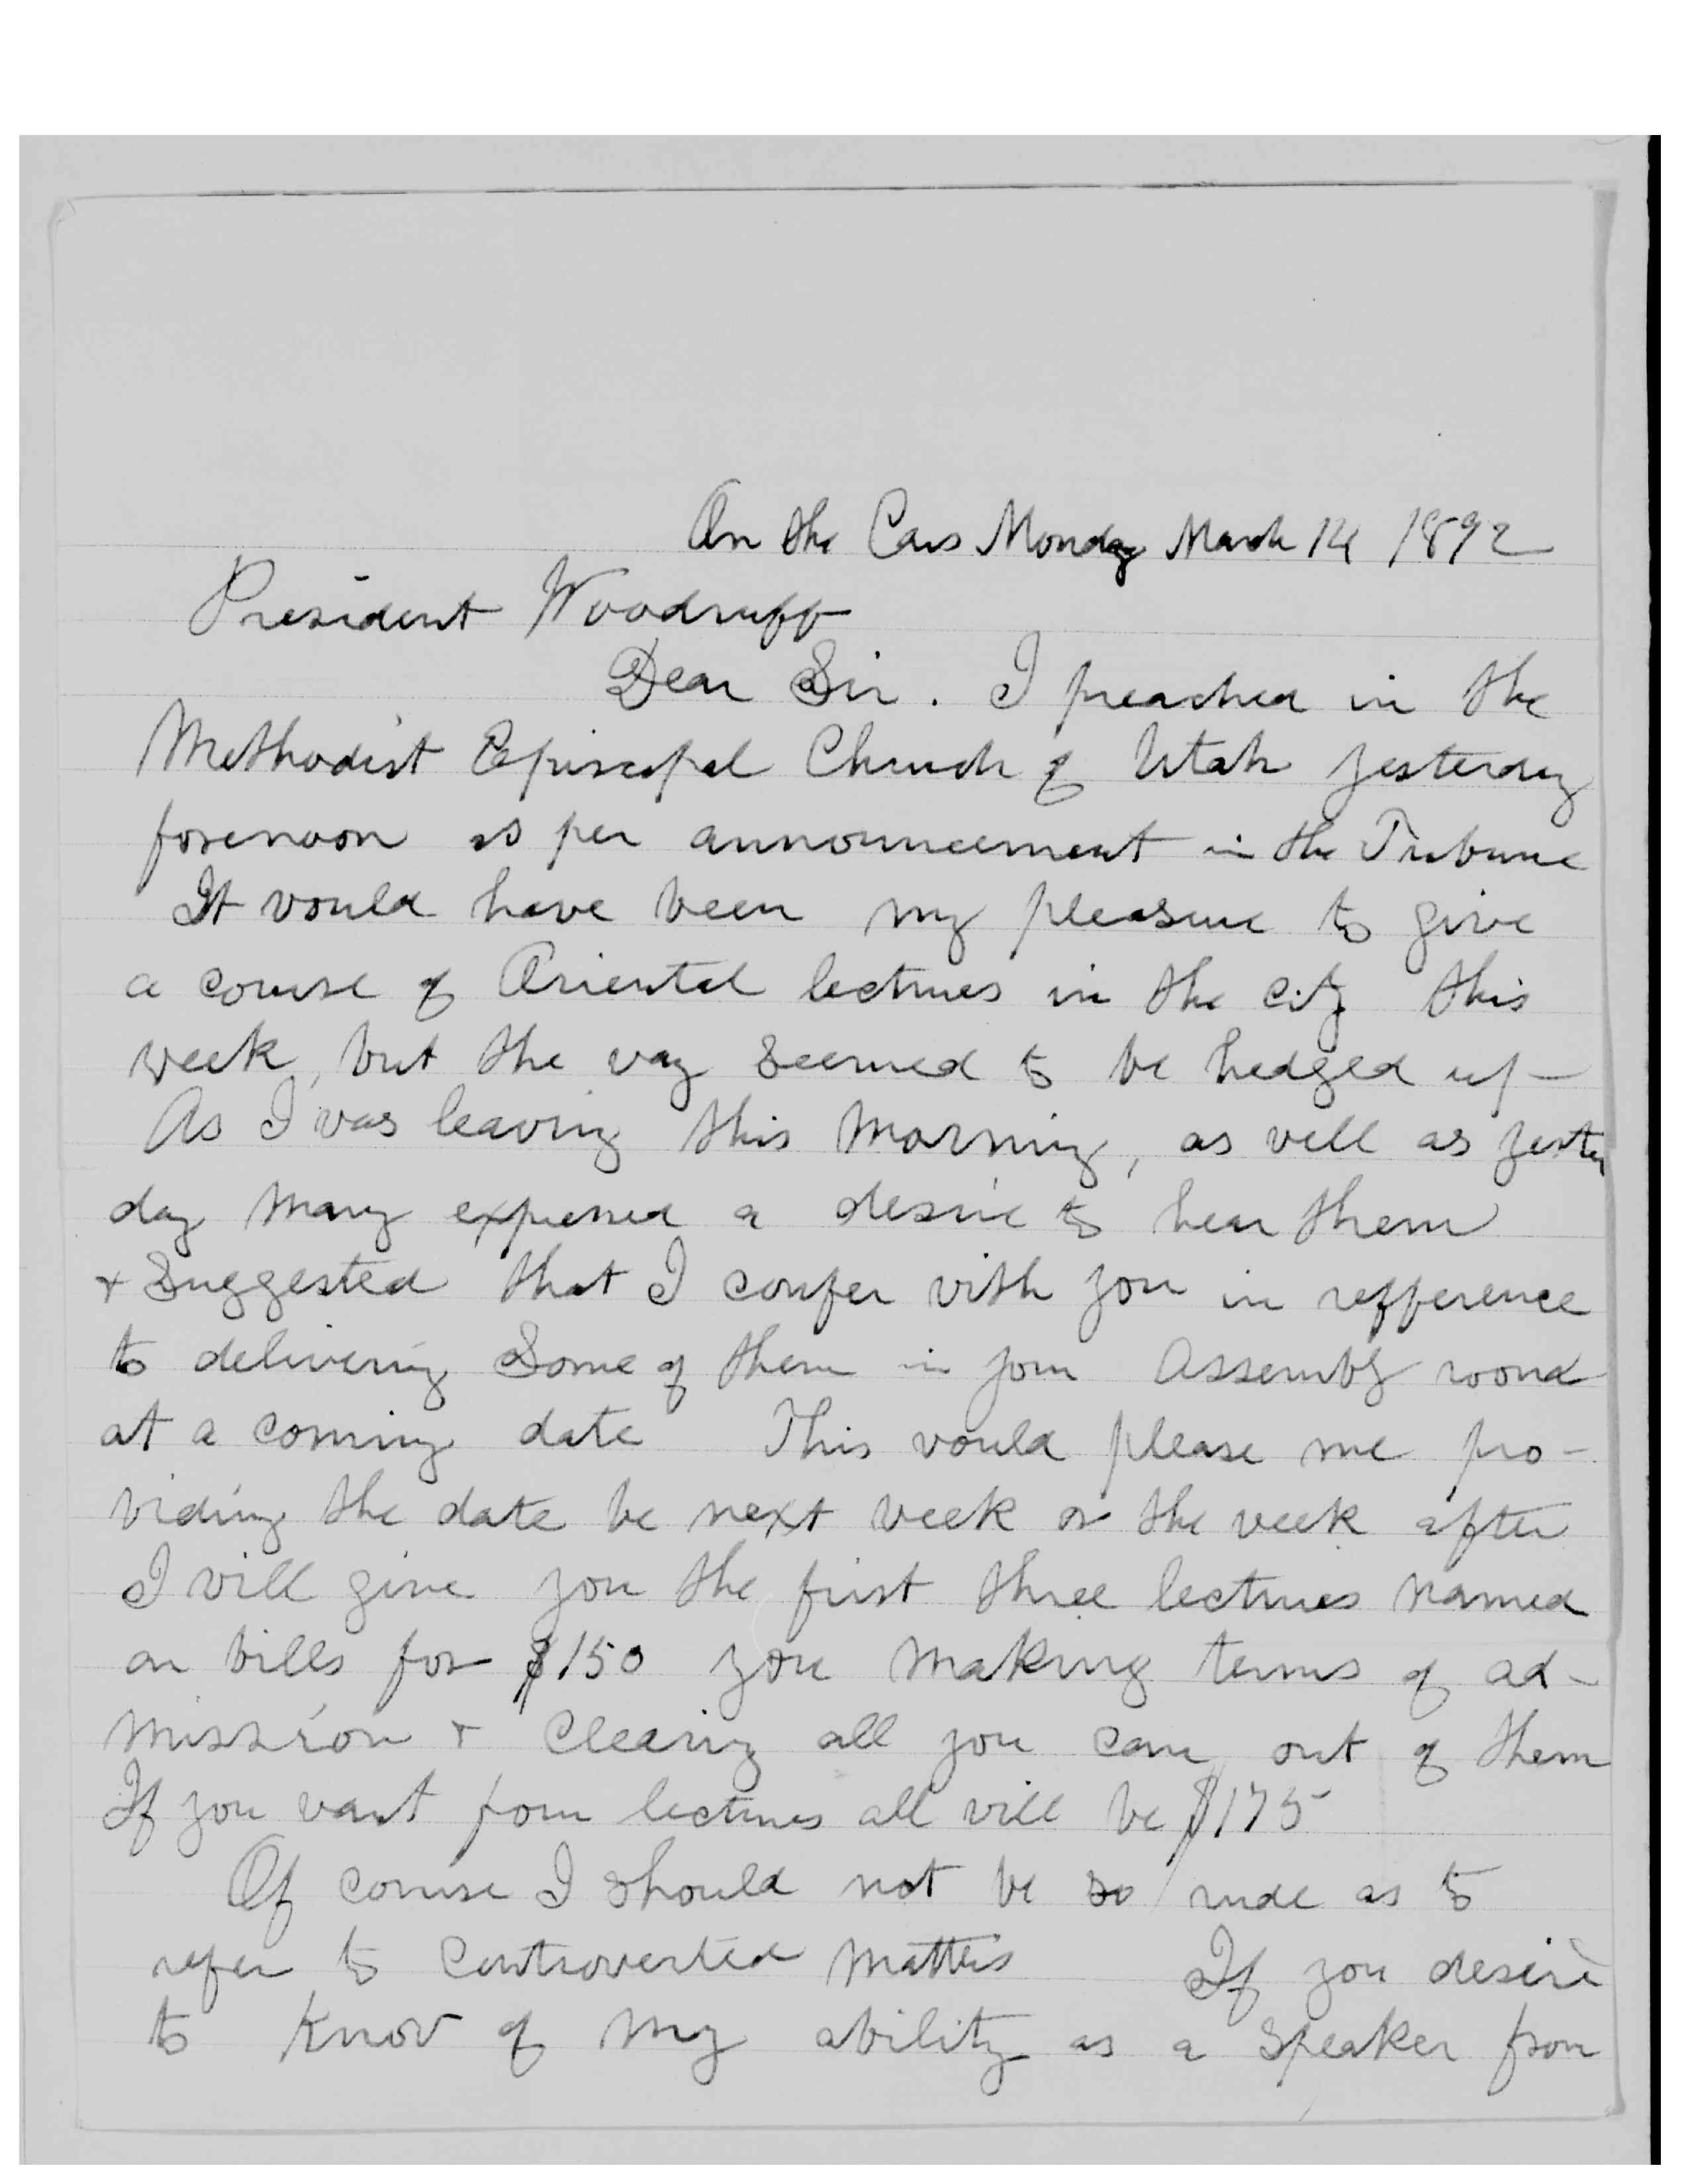 On the Cars Monday March 14 1892
President Woodruff
Dear Sir. I preached in the
Methodist Episcopal Church of Utah yesterday
forenoon as per announcement in the Tribune
It would have been my pleasure to give
a course of Oriental lectures in the city this
week, but the way seemed to be hedged up—
As I was leaving this morning, as well as yester
day many expressed a desire to hear them
& Suggested that I confer with you in refference
to delivering Some of them in your Assembly room
at a coming date This would please me pro-
viding the date be next week or the week after
I will give you the first three lectures named
on bills for $150 you making terms of ad-
mission & Clearing all you can out of them
If you want four lectures all will be $175
Of course I should not be so rude as to
refer to Controverted matters If you desire
to know of my ability as a Speaker from